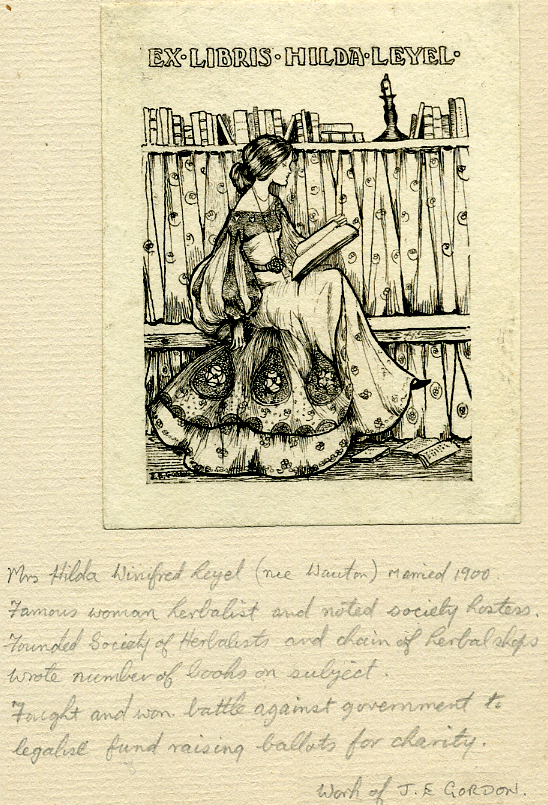 EX·LIBRIS·HILDA·LEYEL·
Mrs Hilda Winifred Leyel (nee Wauton) married 1900.
Famous woman herbalist and noted society hostess.
Founded Society of Herbalists and chain of herbal shops
wrote number of books on subject.
Fought and won battle against government to
legalise fund raising ballots for charity.
Work of J. E GORDON.